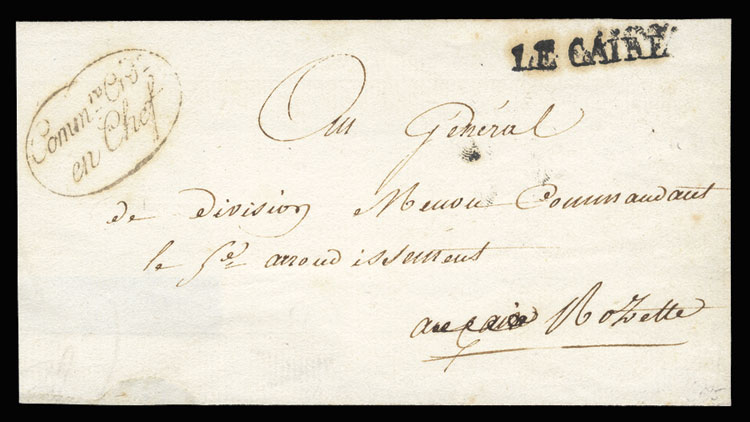 LE CAIRE
Comm.re Ord.
en Chef
Au Général
de division Menou Commandant
le 5e. arrondissement
au Caire Rozette